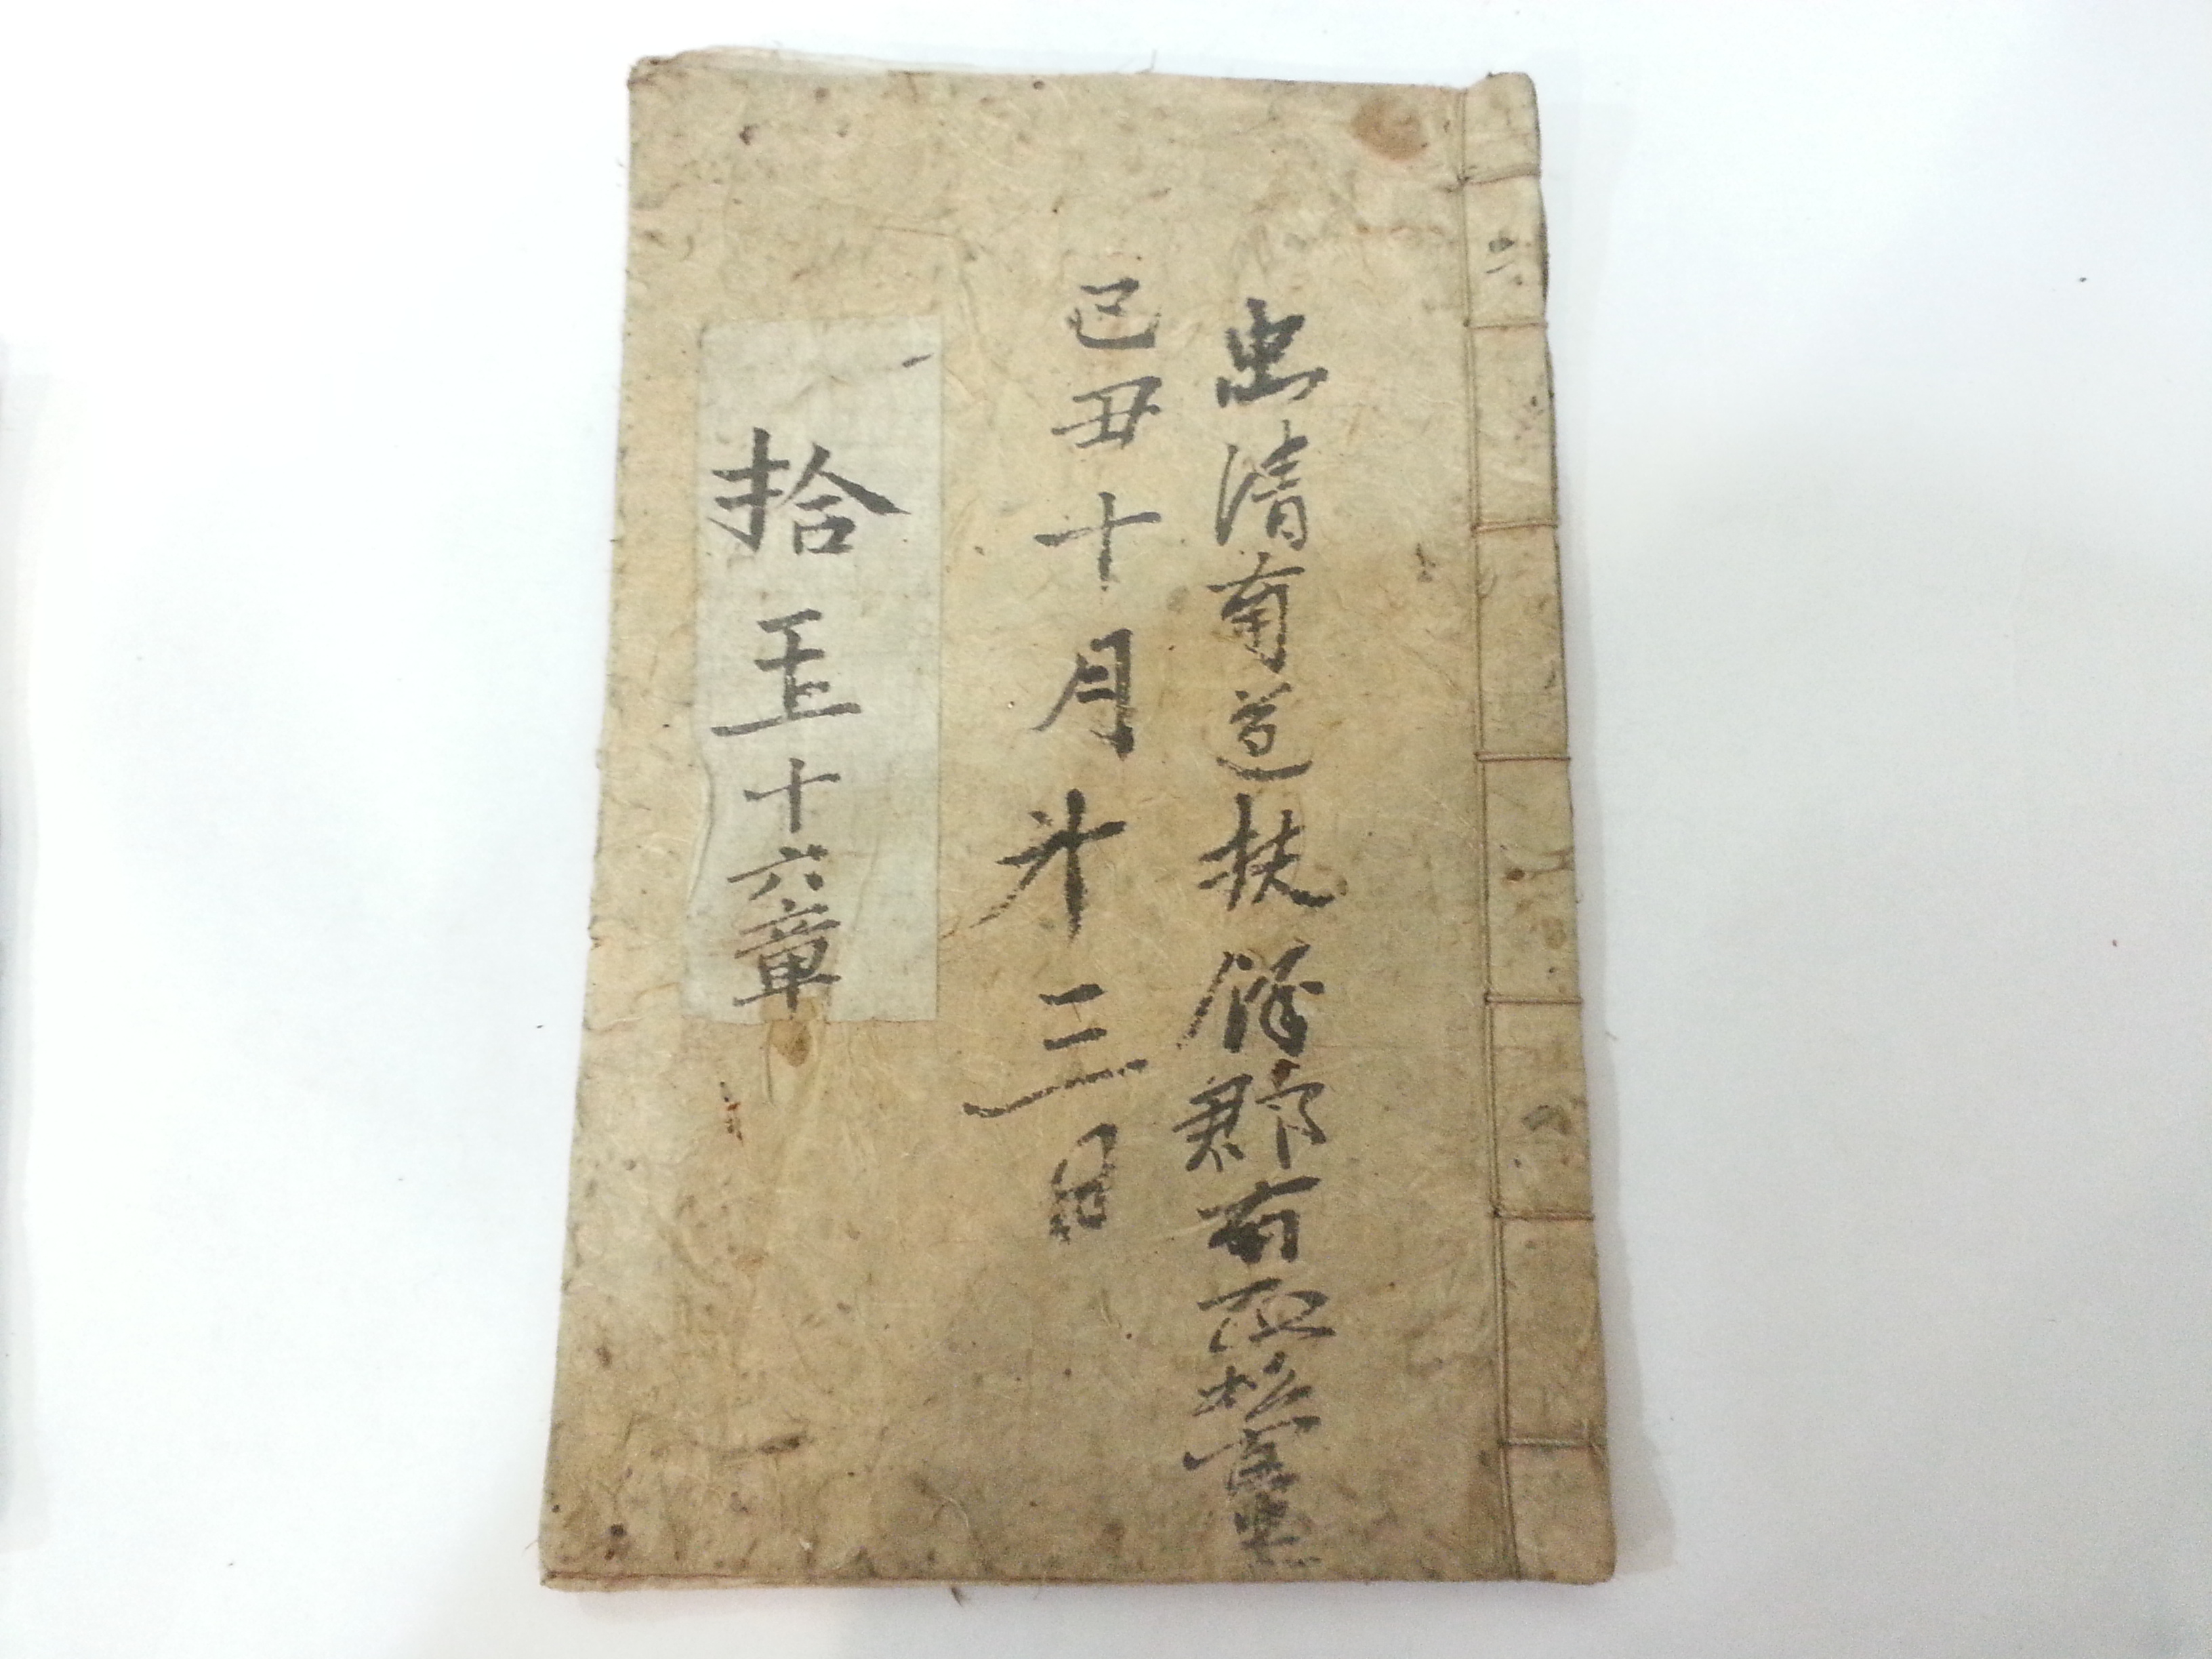 忠清南道扶餘郡南面松
己丑十月廾三日
拾 十六章